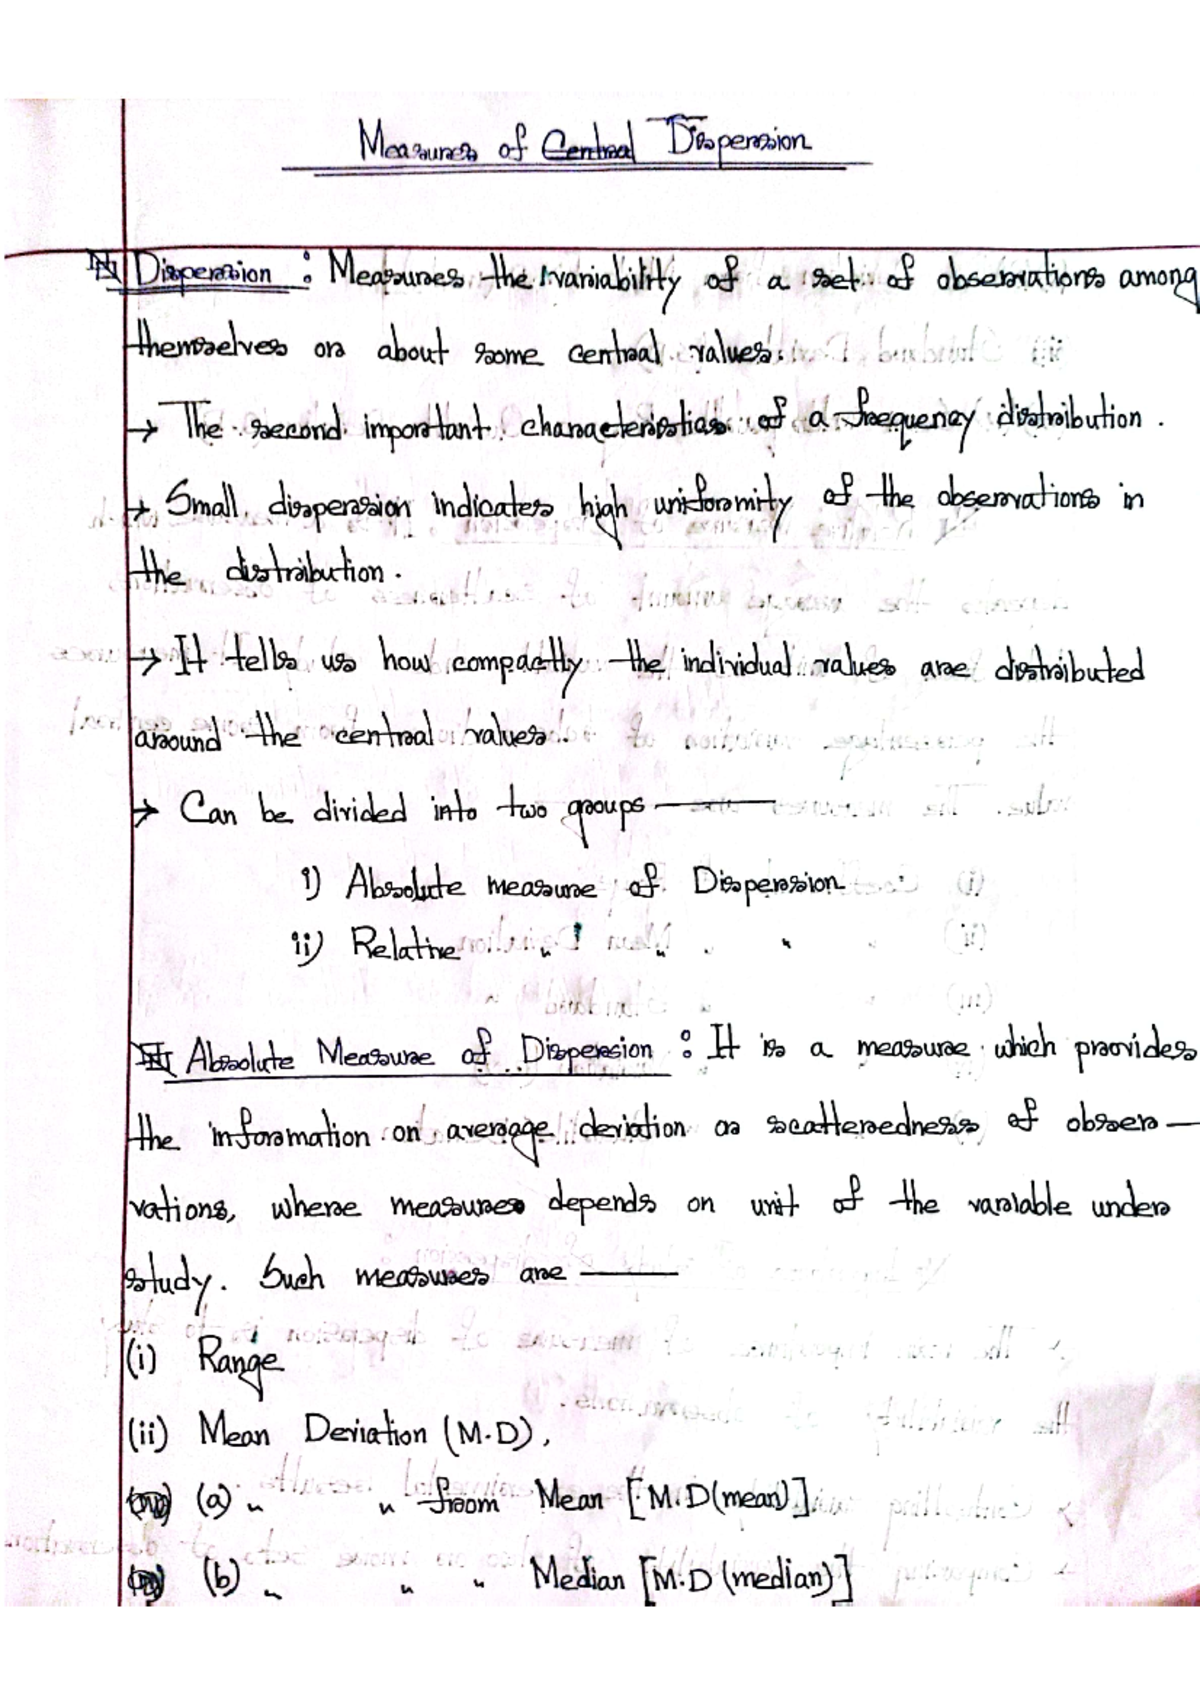 Measures of Central Dispersion
Dispersion : Measures the variability of a set of observations among
themselves or about some central values.
→ The second important characteristics of a frequency distribution.
→ Small dispersion indicates high uniformity of the observations in
the distribution.
→ It tells us how compactly the individual values are distributed
around the central values.
→ Can be divided into two groups —
i) Absolute measure of Dispersion
ii) Relative " " "
Absolute Measure of Dispersion : It is a measure which provides
the information on average deviation or scatteredness of obser—
vations, where measures depends on unit of the variable under
study. Such measures are —
(i) Range
(ii) Mean Deviation (M.D),
(a) " " from Mean [M.D(mean)]
(b) " " " Median [M.D (median)]